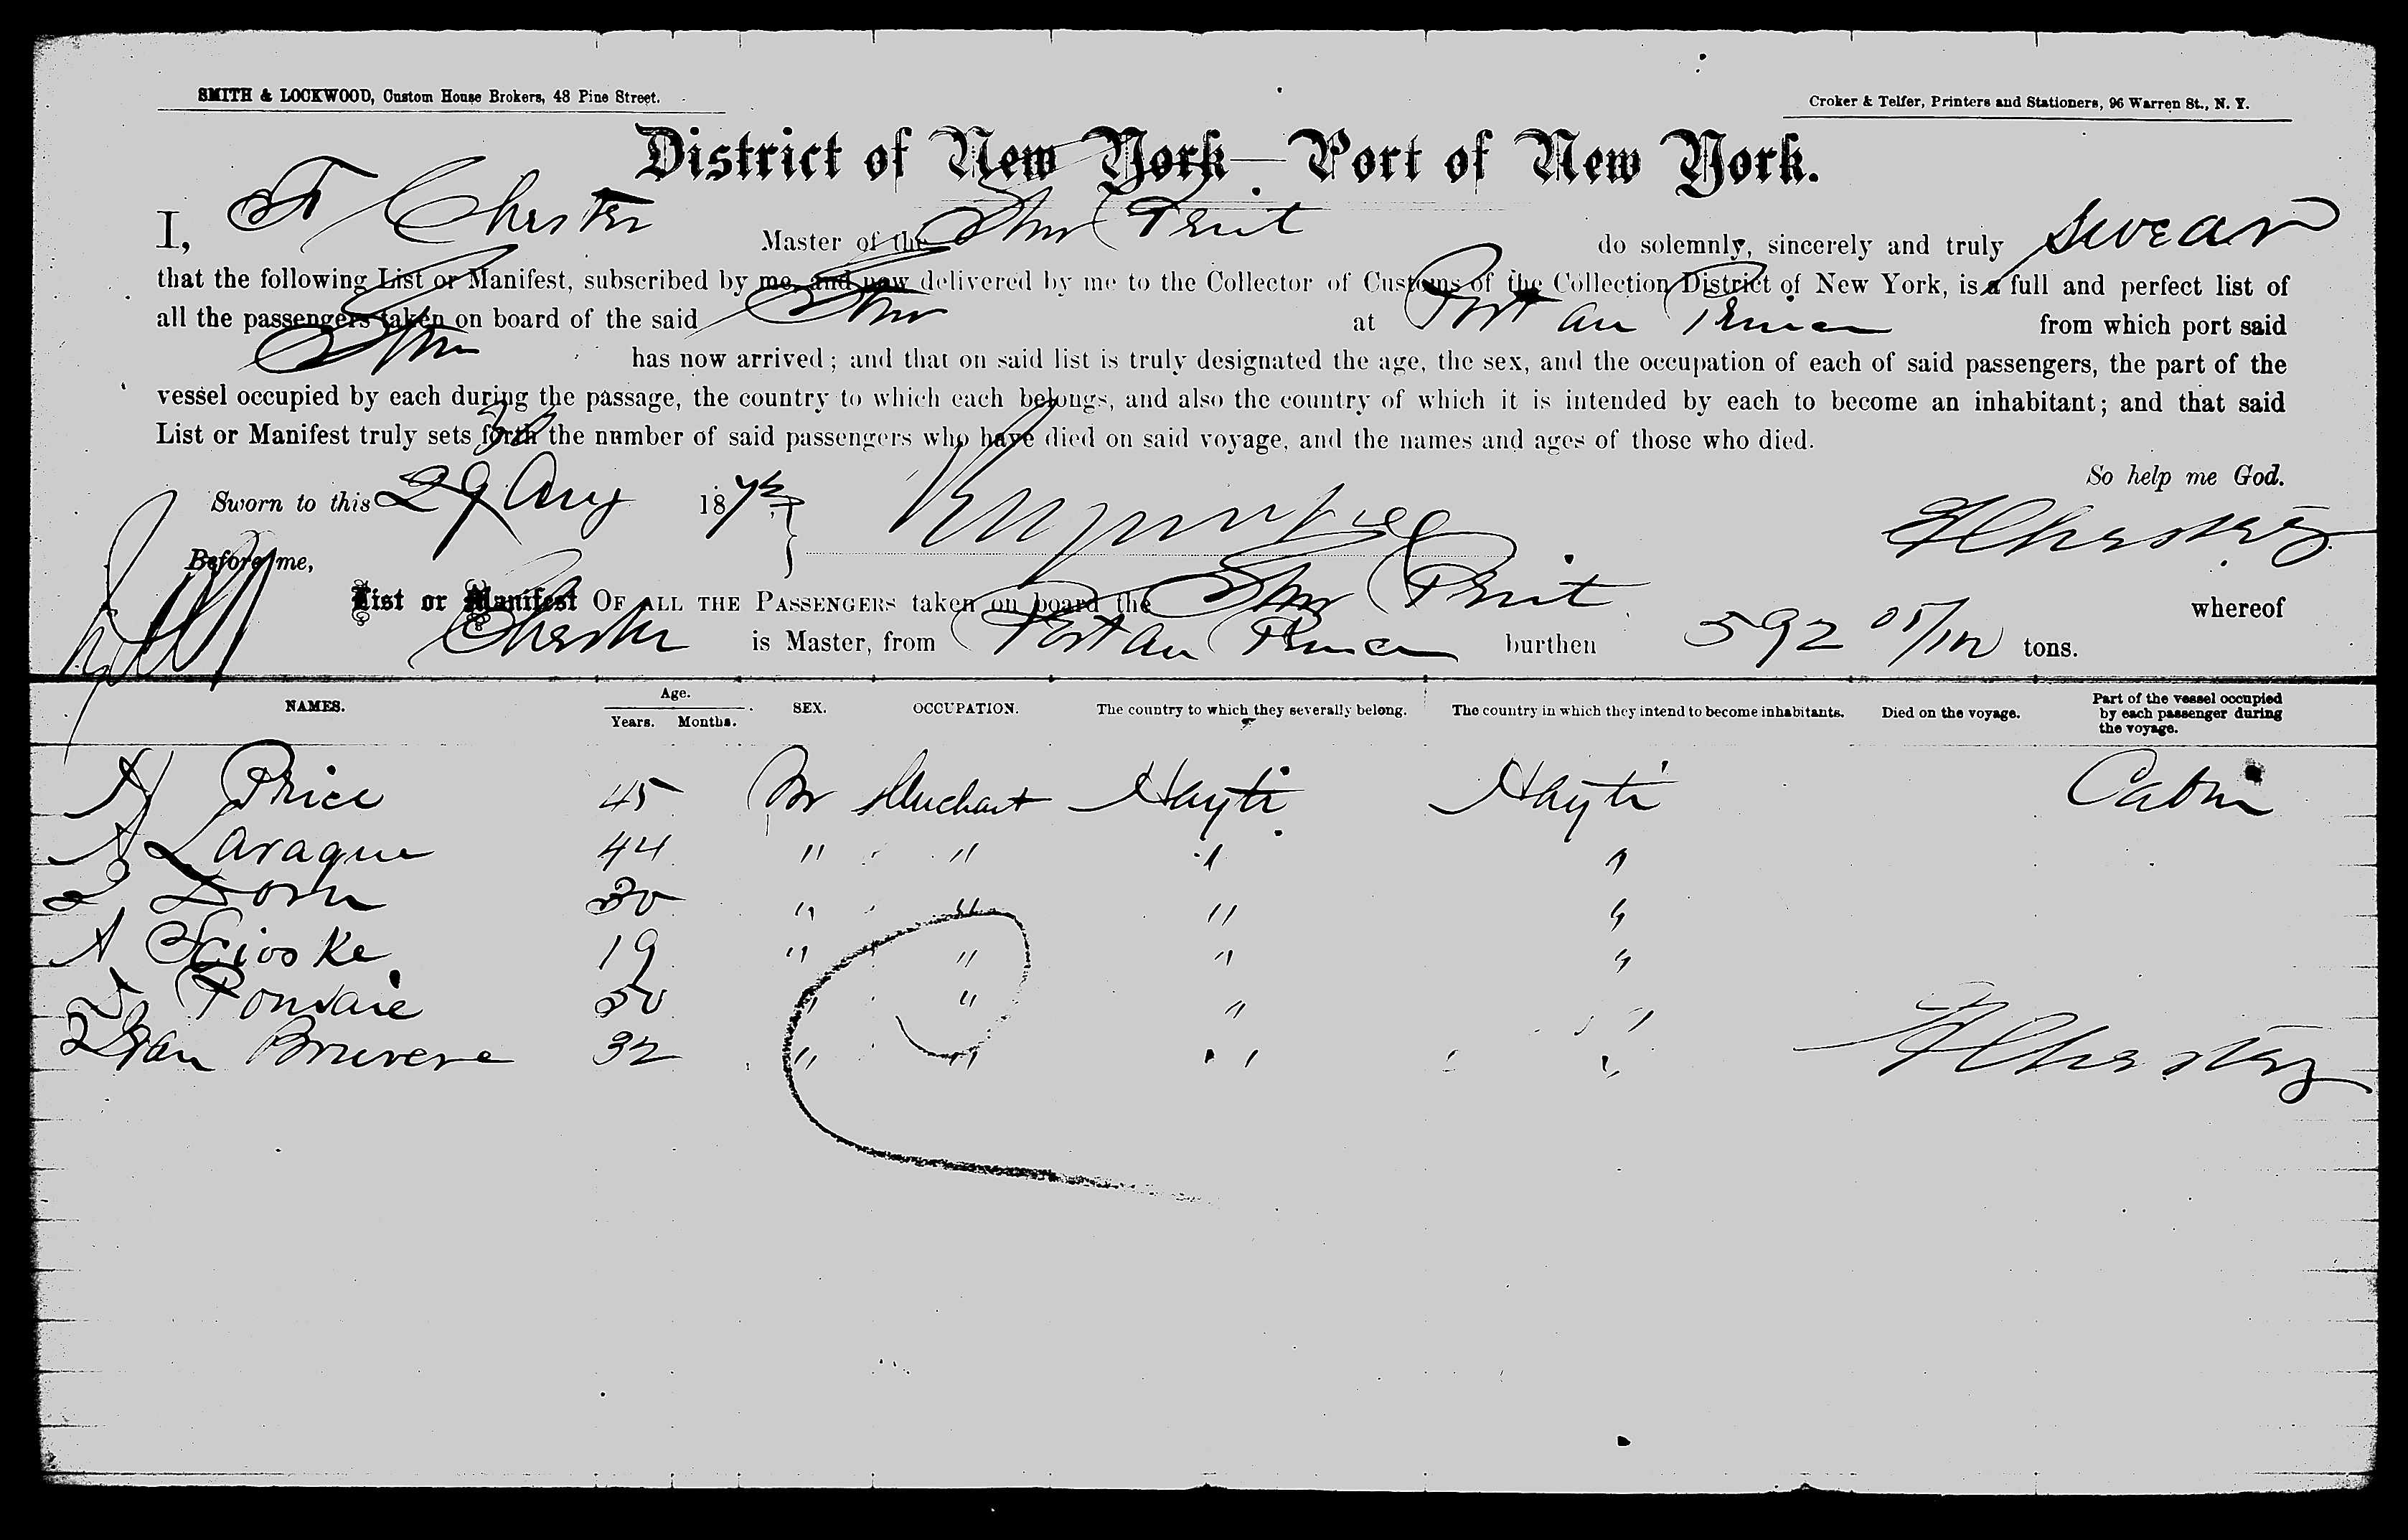 SMITH & LOCKWOOD, Custom House Brokers, 48 Pine Street.
Croker & Telfer, Printers and Stationers, 96 Warren St., N. Y.
District of New York—Port of New York.
I, F Chester Master of the Stmr do solemnly, sincerely and truly swear
that the following List or Manifest, subscribed by me, and now delivered by me to the Collector of Customs of the Collection District of New York, is a full and perfect list of
all the passengers taken on board of the said Stmr at Port au Prince from which port said
Stmr has now arrived; and that on said list is truly designated the age, the sex, and the occupation of each of said passengers, the part of the
vessel occupied by each during the passage, the country to which each belongs, and also the country of which it is intended by each to become an inhabitant; and that said
List or Manifest truly sets forth the number of said passengers who have died on said voyage, and the names and ages of those who died.
So help me God.
Sworn to this 29 Aug 187
F Chester
Before me,
List or Manifest OF ALL THE PASSENGERS taken on board the Stmr whereof
Chester is Master, from Port au Prince burthen 592 tons.
NAMES. Age. Years. Months. SEX. OCCUPATION. The country to which they severally belong. The country in which they intend to become inhabitants. Died on the voyage. Part of the vessel occupied by each passenger during the voyage.
Price 45 M Merchant Hayti Hayti Cabin
A Laraque 44 " " " "
Dorn 30 " " " "
A 19 " " " "
50 " " " "
32 " " " "
F Chester